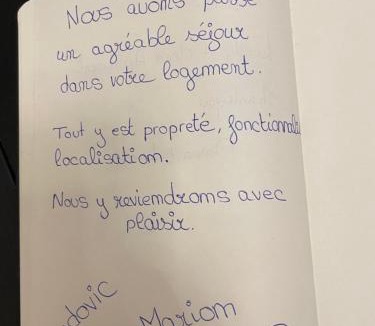 Nous avons passé
un agréable séjour
dans votre logement.
Tout y est propreté, fonctionnal
localisation.
Nous y reviendrons avec
plaisir.
dovic
Mariom